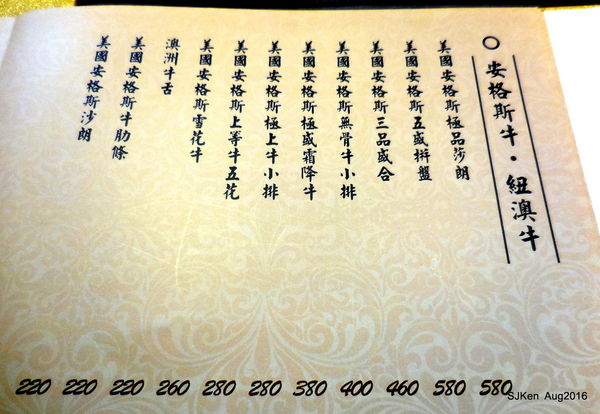 安格斯牛・紐澳牛
美國安格斯極品莎朗
580
美國安格斯五盛拼盤
580
美國安格斯三品盛合
460
美國安格斯無骨牛小排
400
美國安格斯極盛霜降牛
380
美國安格斯極上牛小排
280
美國安格斯上等牛五花
280
美國安格斯雪花牛
260
澳洲牛舌
220
美國安格斯牛肋條
220
美國安格斯沙朗
220
SJKen Aug2016